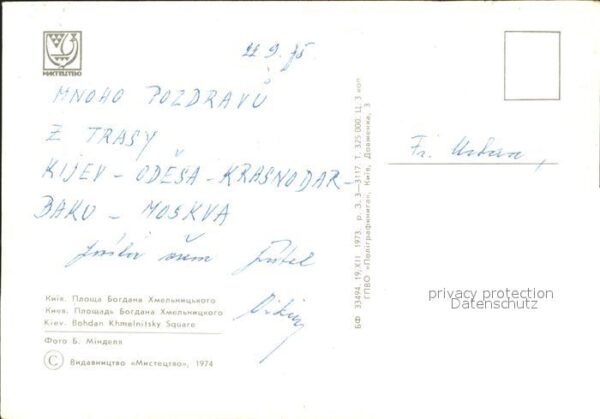 МИСТЕЦТВО
22.9.75
MNOHO POZDRAVŮ
Z TRASY
KIJEV - ODĚSA - KRASNODAR -
BAKU - MOSKVA
všem
Fr.
Київ. Площа Богдана Хмельницького
Киев. Площадь Богдана Хмельницкого
Kiev. Bohdan Khmelnitsky Square
Фото Б. Мінделя
© Видавництво «Мистецтво», 1974
БФ 33494. 19.XII. 1973. р. З. 3—3117. Т. 325 000. Ц. 3 коп.
ГПВО «Поліграфкнига», Київ, Довженка, 3
privacy protection
Datenschutz